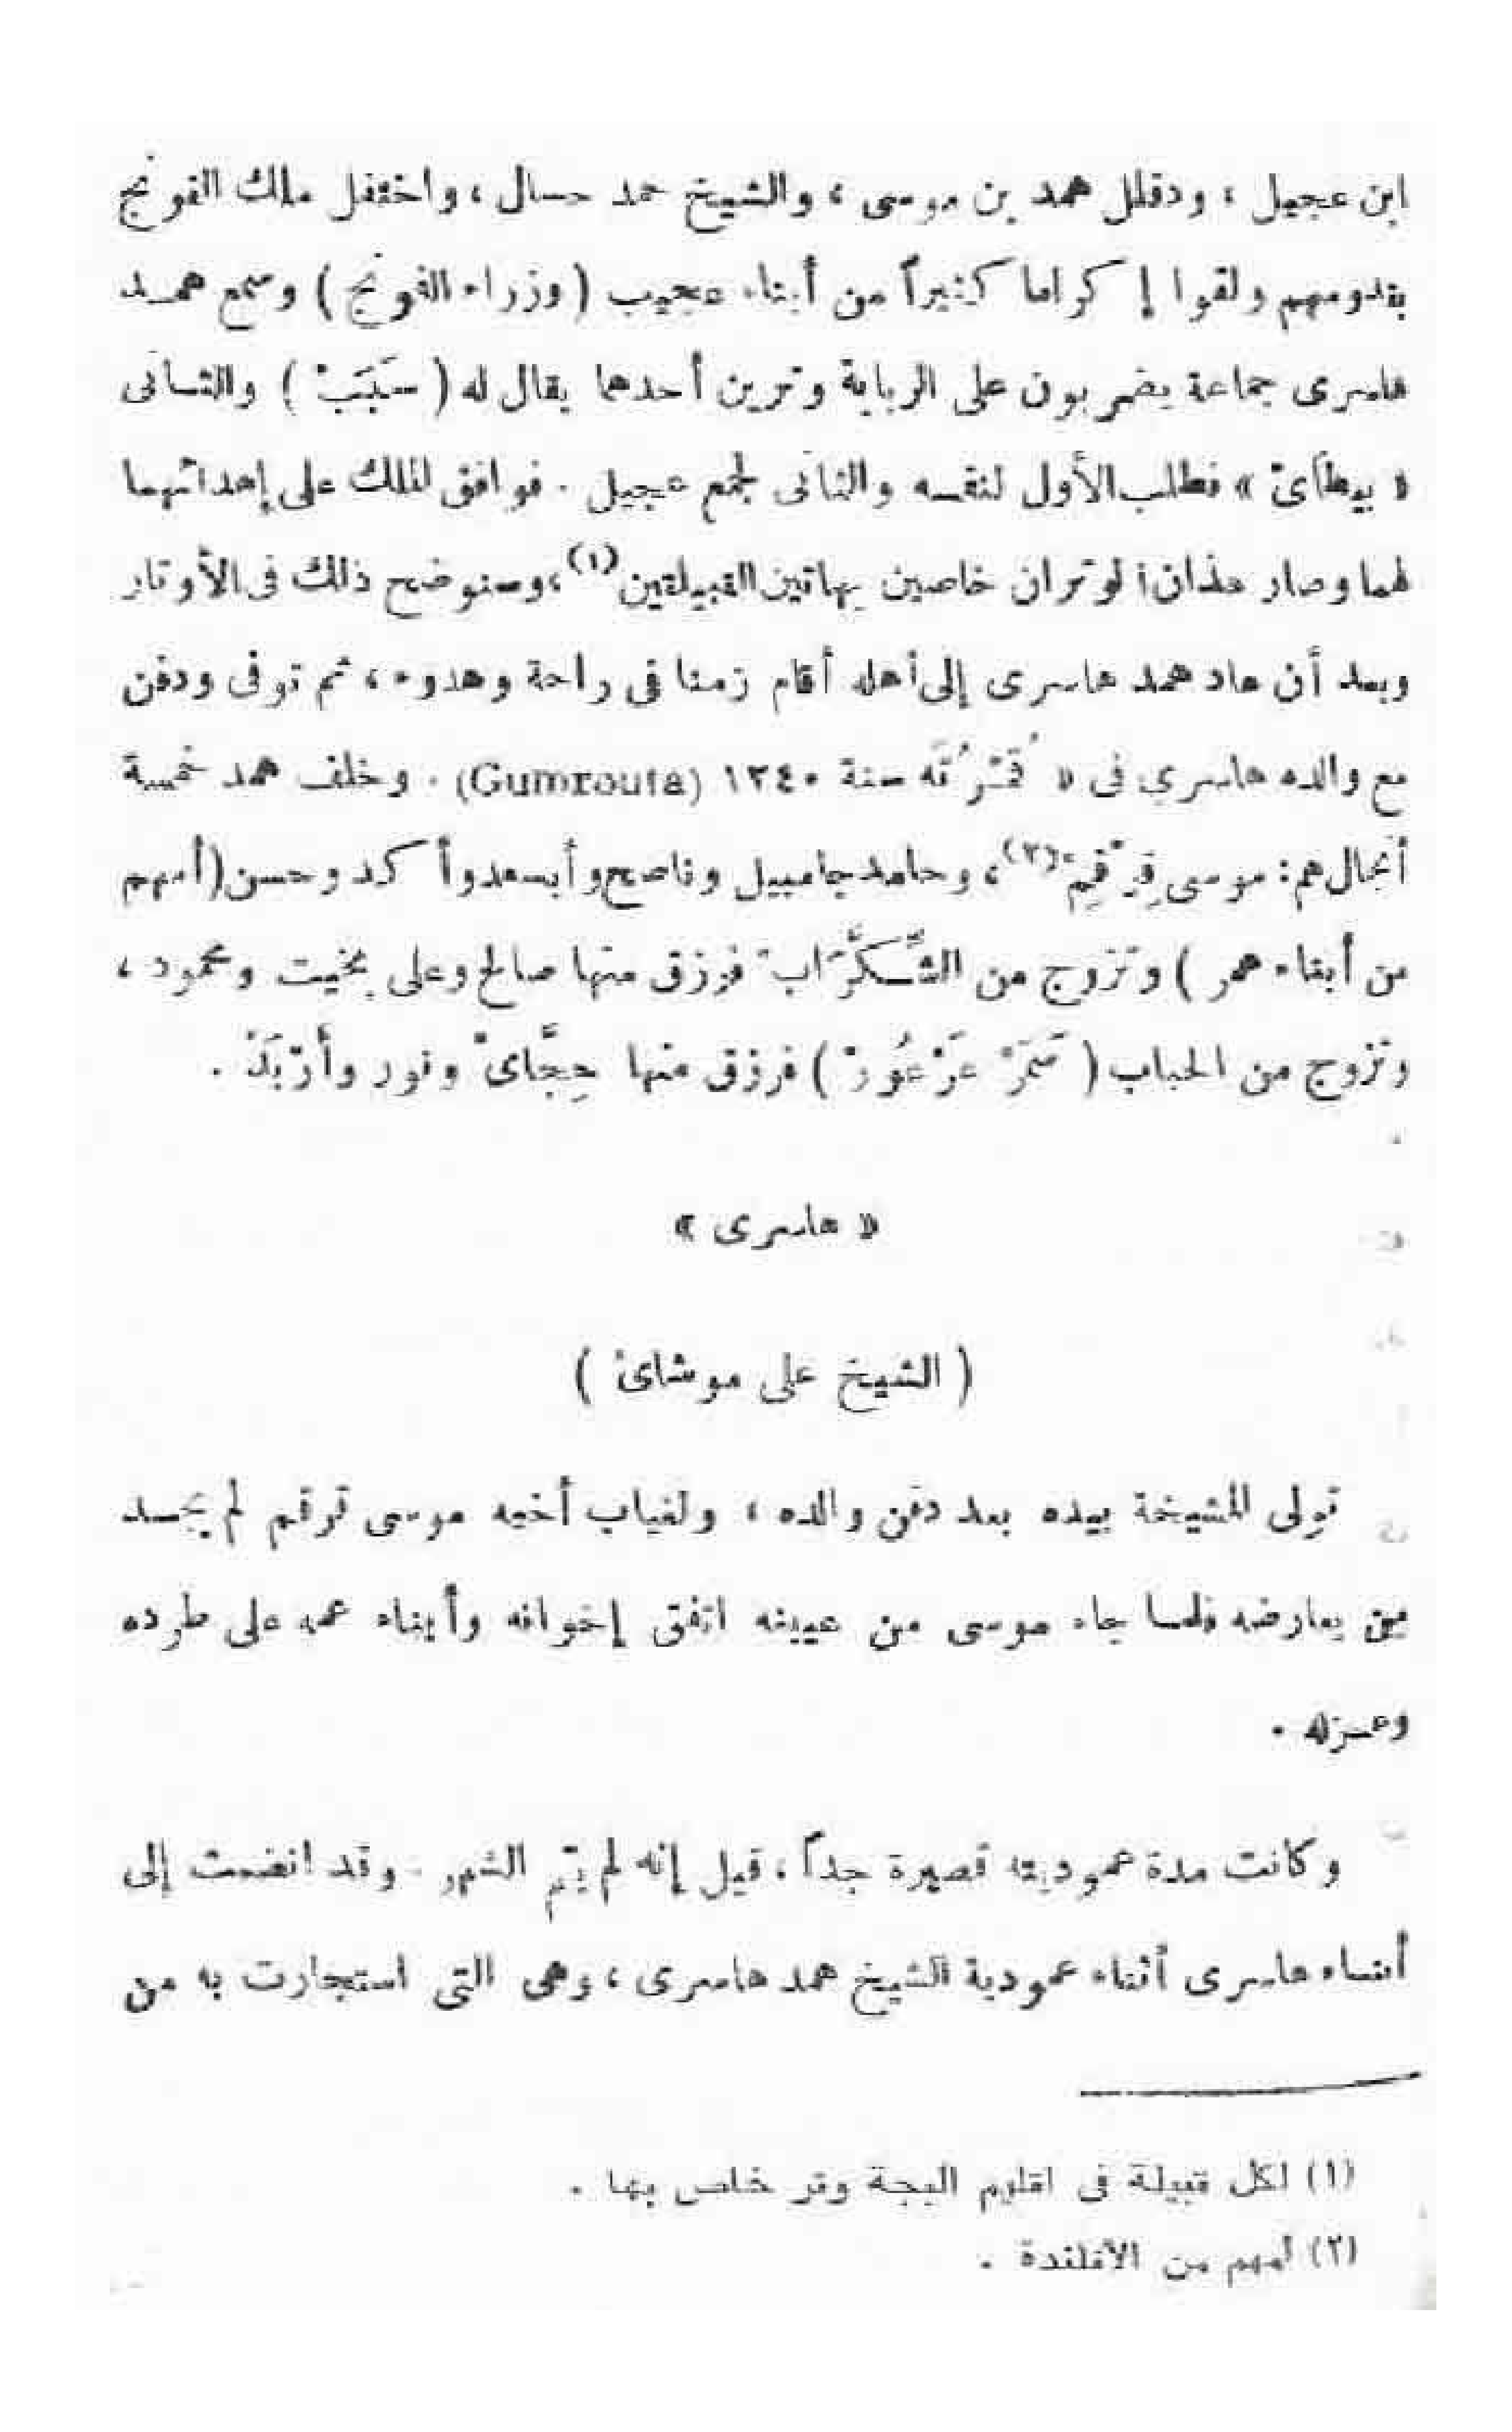 ابن عجيل ، ودقلل همد بن موسى ، والشيخ حمد حسال ، واحتفل ملك الفونج
بقدومهم ولقوا إكراما كثيراً من أبناء عجيب (وزراء الفونج) وسمع همد
هاسرى جماعة يضربون على الربابة وترين أحدهما يقال له (سَبَبَبْ) والثانى
« بيطَاىْ » فطلب الأول لنفسه والثانى لجمع عجيل . فوافق الملك على إهدائهما
لهما وصار هذان الوتران خاصين بهاتين القبيلتين (١) ، وسنوضح ذلك فى الأوتار
وبعد أن عاد همد هاسرى إلى أهله أقام زمنا فى راحة وهدوء ، ثم توفى ودفن
مع والده هاسري فى « سنة ١٢٤٠ (Gumrouta) . وخلف همد خمسة
أنجال هم : موسى قِرْقِمْ (٢) ، وحامد جامبيل وناصح وأبسعد وأكد وحسن (أمهم
من أبناء همر ) وتزوج من الشَّكَّرَابْ فرزق منها صالح وعلى بخيت ومحمود ،
وتزوج من الحباب ( عَرْعُورْ ) فرزق منها حِجَّاىْ ونور وأرْبَدْ .
« هاسرى »
( الشيخ على موشاىْ )
تولى المشيخة بيده بعد دفن والده ، ولغياب أخيه موسى قرقم لم يجد
من يعارضه فلما جاء موسى من غيبته اتفق إخوانه وأبناء عمه على طرده
وعزله .
وكانت مدة عموديته قصيرة جداً ، قيل إنه لم يتم الشهر . وقد انضمت إلى
هاسرى أثناء عمودية الشيخ همد هاسرى ، وهى التى استجارت به من
(١) لكل قبيلة فى اقليم البجة وتر خاص بها .
(٢) أمهم من الأفلندة .